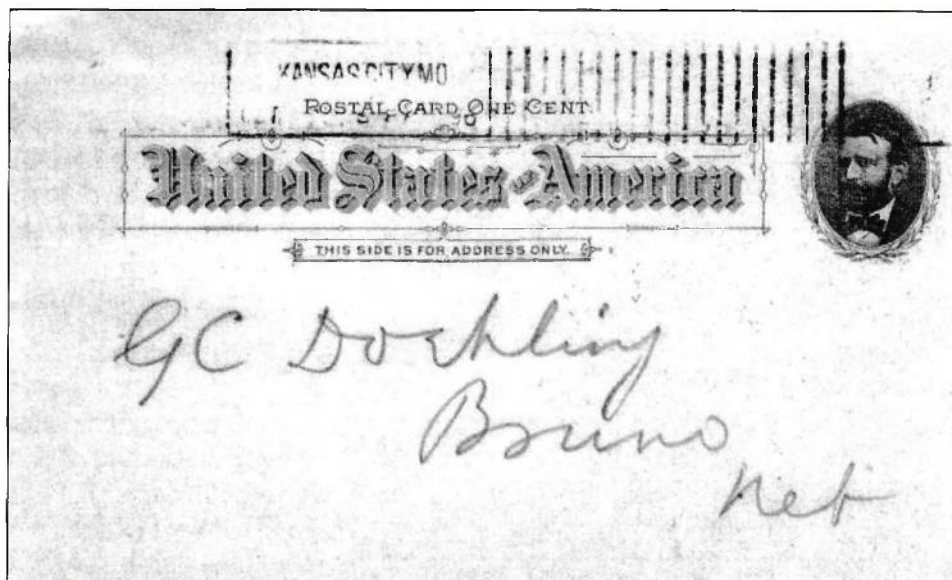 KANSAS CITY MO
POSTAL CARD ONE CENT
United States of America
THIS SIDE IS FOR ADDRESS ONLY.
GC Doehling
Bruno
Neb